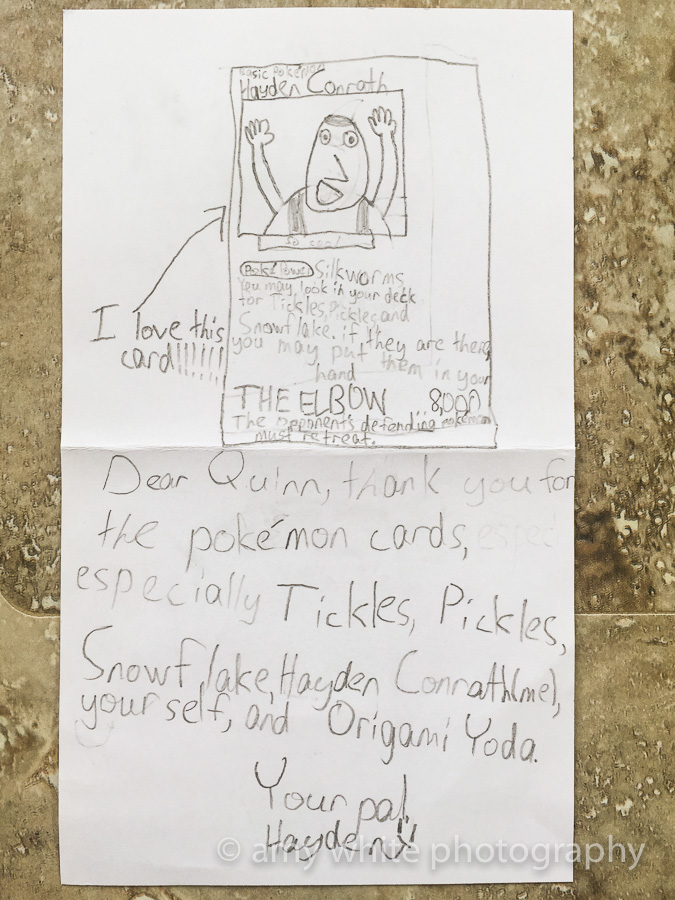 Basic Pokémon
Hayden Conrath
So cool
Poké Power Silkworms
You may look in your deck
for Tickles, Pickles, and
Snowflake. if they are there,
you may put them in your
hand
THE ELBOW 8,000
The opponent's defending pokémon
must retreat.
I love this
card!!!!!!
Dear Quinn, thank you for
the pokémon cards, espec
especially Tickles, Pickles,
Snowflake, Hayden Conrath(me),
yourself, and Origami Yoda.
Your pal,
Hayden
© amy white photography